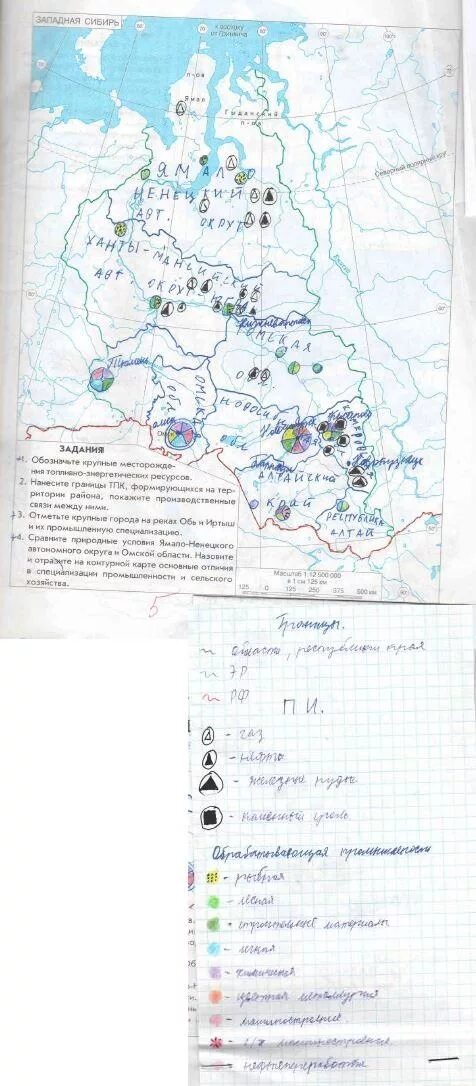 ЗАПАДНАЯ СИБИРЬ
к востоку
от Гринвича
п-ов
Ямал
Гыданский
п-ов
Северный полярный круг
ЯМАЛО
НЕНЕЦКИЙ
АВТ.
ОКРУГ
ХАНТЫ-МАНСИЙСКИЙ
АВТ.
ОКРУГ-ЮГРА
Нижневартовск
ТОМСКАЯ
Тюмень
Омск
АЛТАЙСКИЙ
КРАЙ
РЕСПУБЛИКА
АЛТАЙ
ЗАДАНИЯ
1. Обозначьте крупные месторожде-
ния топливно-энергетических ресурсов.
2. Нанесите границы ТПК, формирующихся на тер-
ритории района, покажите производственные
связи между ними.
3. Отметьте крупные города на реках Обь и Иртыш
и их промышленную специализацию.
4. Сравните природные условия Ямало-Ненецкого
автономного округа и Омской области. Назовите
и отразите на контурной карте основные отличия
в специализации промышленности и сельского
хозяйства.
Масштаб 1:12 500 000
в 1 см 125 км
125 0 125 250 375 500 км
5
Границы.
области, республики края
ЭР
РФ
П И.
- газ
- нефть
- железные руды
- каменный уголь
Обрабатывающая промышленность
- рыбная
- лесная
- строительные материалы
- лёгкая
- химическая
- цветная металлургия
- машиностроение
- с/х машиностроение
- нефтепереработка